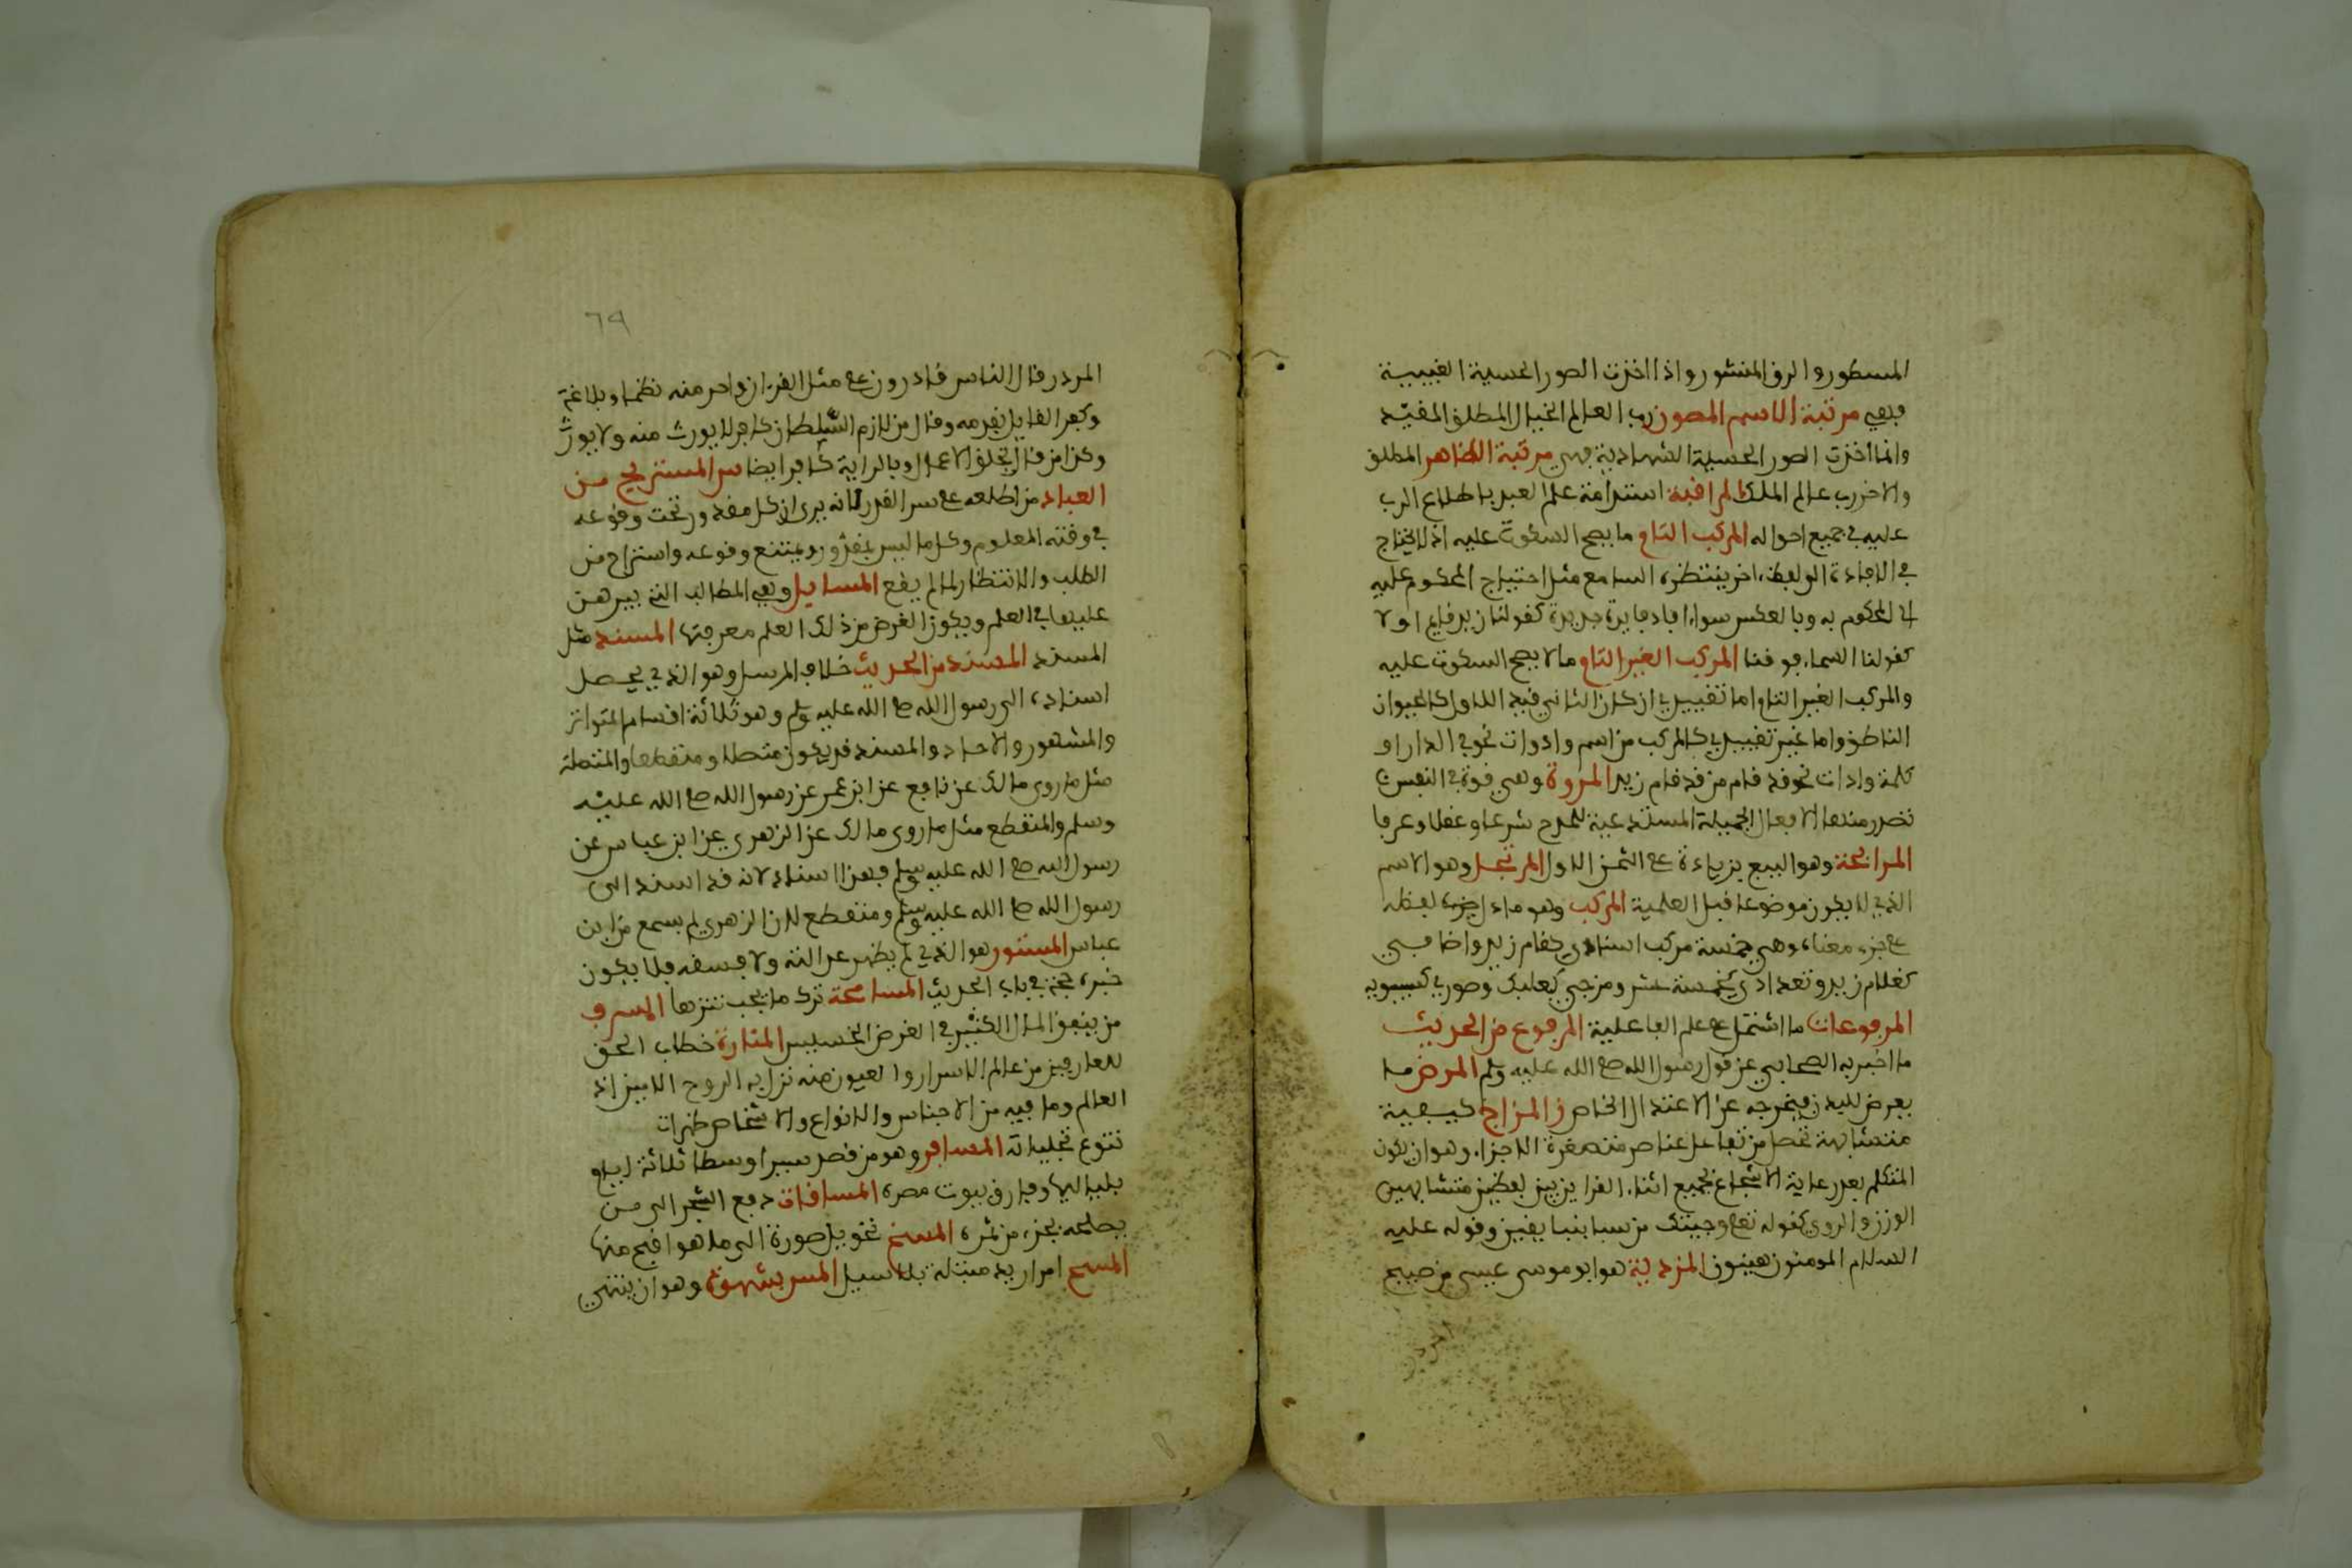 المسطور والرق المنشور واذا اخذت الصور الحسية الغيبية
فهي مرتبة الاسم المصور رب العالم الخيال المطلق المقيد
واذا اخذت الصور الحسية الشهادية فهي مرتبة الظاهر المطلق
والاخر رب عالم الملك المراقبة استدامة علم العبد باطلاع الرب
عليه في جميع احواله المركب التام ما يصح السكوت عليه اذ لا يحتاج
في الافادة الى لفظ اخر ينتظره السامع مثل احتياج المحكوم عليه
الى المحكوم به وبالعكس سواء افاد فايدة جديدة كقولنا زيد قايم او لا
كقولنا السماء فوقنا المركب الغير التام ما لا يصح السكوت عليه
والمركب الغير التام اما تقييدي ان كان الثاني قيد الاول كالحيوان
الناطق واما غير تقييدي كالمركب من اسم وادوات نحو في الدار او
كلمة وادات نحو قد قام من قد قام زيد المروة وهي قوة في النفس
تصدر منها الافعال الجميلة المستدعية للمدح شرعا وعقلا وعرفا
المرابحة وهو البيع بزيادة على الثمن الاول المرتجل وهو الاسم
الذي لا يكون موضوعا قبل العلمية المركب وهو ما دل جزء لفظه
على جزء معناه وهي خمسة مركب اسنادي كقام زيد واضافي
كغلام زيد وتعدادي كخمسة عشر ومزجي كبعلبك وصوري كسيبويه
المرفوعات ما اشتمل على علم الفاعلية المرفوع من الحديث
ما اخبر به الصحابي عن قول رسول الله صلى الله عليه وسلم المرض ما
يعرض للبدن فيخرجه عن الاعتدال الخاص المزاج كيفية
متشابهة تحصل من تفاعل عناصر متصغرة الاجزاء وهو ان يكون
المتكلم بعد رعاية الاسجاع يجمع اثناء القراين بين لفظين متشابهين
الوزن والروي كقوله تعلى وجيتك من سبا بنبا يقين وقوله عليه
السلام المومنون هينون المزدية هو ابو موسى عيسى بن صبيح
المردر
المردر قال الناس قادرون على مثل القران واحسن منه نظما وبلاغة
وكفر القايل بقدمه وقال من لازم السلطان كافر لا يورث منه ولا يورث
وكذا من قال بخلق الاعمال وبالراية كافر ايضا سر المستريح من
العباد من اطلعه على سر القدر لانه يرى ان كل مقدور تحت وقوعه
في وقته المعلوم وكل ما ليس بمقدور يمتنع وقوعه واستراح من
الطلب والانتظار لما لم يقع المسايل وهي المطالب التي يبرهن
عليها في العلم ويكون الغرض من ذلك العلم معرفتها المسند مثل
المسند المسند من الحديث خلاف المرسل وهو الذي يحصل
اسناده الى رسول الله صلى الله عليه وسلم وهو ثلاثة اقسام المتواتر
والمشهور والاحاد والمسند قد يكون متصلا ومنقطعا والمتصلة
مثل ما روى مالك عن نافع عن ابن عمر عن رسول الله صلى الله عليه
وسلم والمنقطع مثل ما روى مالك عن الزهري عن ابن عباس عن
رسول الله صلى الله عليه وسلم فهذا اسناد لانه قد اسند الى
رسول الله صلى الله عليه وسلم ومنقطع لان الزهري لم يسمع من ابن
عباس المستور هو الذي لم يظهر عدالته ولا فسقه فلا يكون
خبره حجة في باب الحديث المسامحة ترك ما يجب تنزها المسرف
من ينفق المال الكثير في الغرض الخسيس المنارة خطاب الحق
للعارفين من عالم الاسرار والعيون منه نزل به الروح الامين اذ
العالم وما فيه من الاجناس والانواع والاشخاص ظهرات
تنوع تجلياته المسافر وهو من قصد سيرا وسطا ثلاثة ايام
بلياليها وفارق بيوت مصره المساقات دفع الشجر الى من
يصلحه بجزء من ثمره المسخ تحويل صورة الى ما هو اقبح منها
المسح امرار يد مبتلة بلا تسييل المس بشهوة وهو ان يشتهي
٦٩